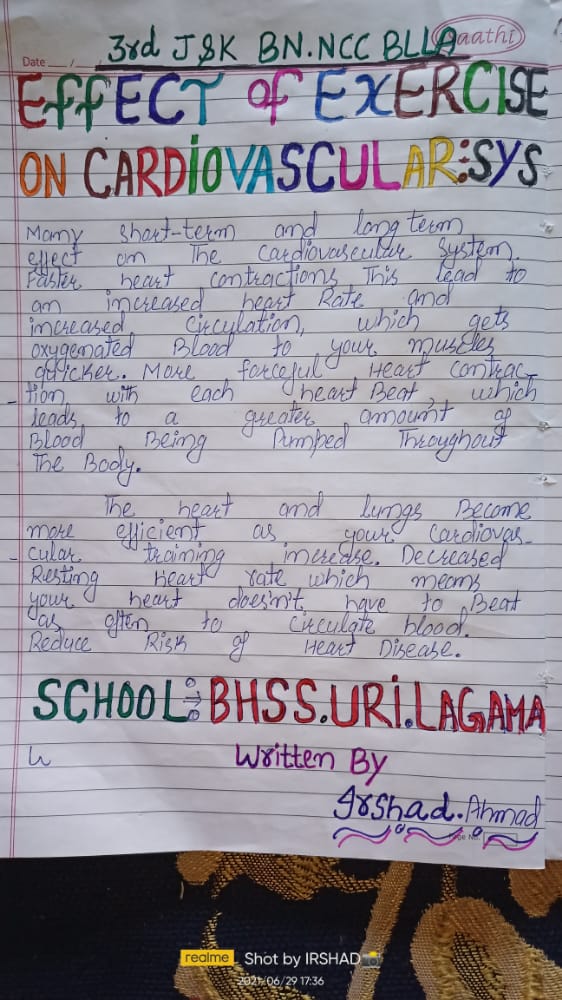 3rd J&K BN.NCC BLLA
Saathi
Date
EffECT of EXERCISE
ON CARDiOVASCULAR:SYS
Many short-term and long term
effect on The Cardiovascular System.
Faster heart contractions This lead to
an increased heart Rate and
increased Circulation, which gets
oxygenated Blood to your muscles
quicker. More forceful Heart contrac-
tion, with each heart Beat, which
leads to a greater amount of
Blood Being Pumped Throughout
The Body.
The heart and lungs Become
more efficient as your Cardiovas-
cular training increase. Decreased
Resting Heart rate which means
your heart does'n't have to Beat
as often to Circulate blood.
Reduce Risk of Heart Disease.
SCHOOL: BHSS.URI.LAGAMA
Written By
Irshad.Ahmad
Page No.
realme Shot by IRSHAD
2021/06/29 17:36